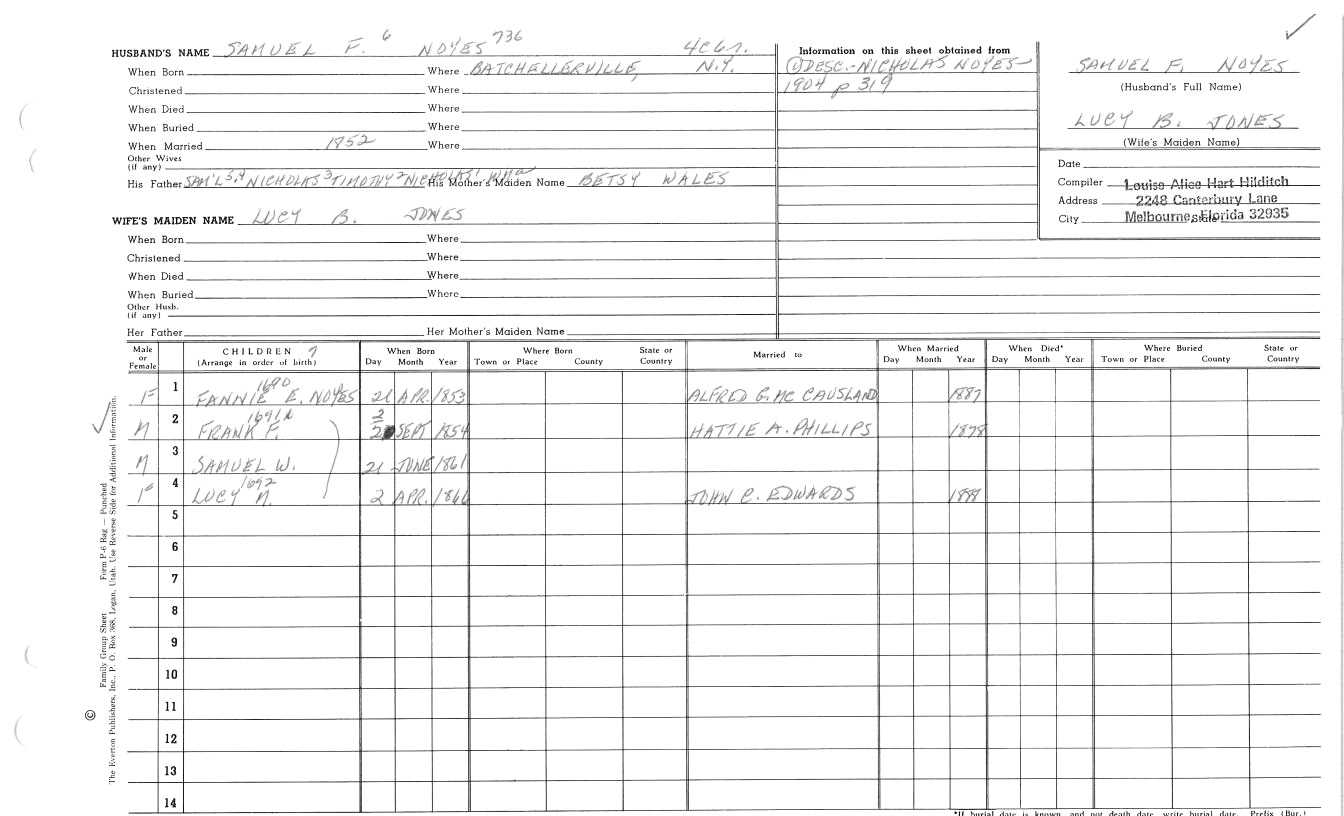 HUSBAND'S NAME SAMUEL F. 6 NOYES 736 4C6r.
When Born Where BATCHELLERVILLE, N.Y.
Christened Where
When Died Where
When Buried Where
When Married 1952 Where
Other Wives
(if any)
His Father SAM'L 5,4 NICHOLAS 3 TIMOTHY 2 NICHOLAS 1 Wm a His Mother's Maiden Name BETSY WALES
WIFE'S MAIDEN NAME LUCY B. JONES
When Born Where
Christened Where
When Died Where
When Buried Where
Other Husb.
(if any)
Her Father Her Mother's Maiden Name
Information on this sheet obtained from
① DESC.-NICHOLAS NOYES
1904 p 319
SAMUEL F. NOYES
(Husband's Full Name)
LUCY B. JONES
(Wife's Maiden Name)
Date
Compiler Louise Alice Hart Hilditch
Address 2248 Canterbury Lane
City Melbourne, Florida 32935
State
Male or Female CHILDREN 7 (Arrange in order of birth) When Born Day Month Year Where Born Town or Place County State or Country Married to When Married Day Month Year When Died* Day Month Year Where Buried Town or Place County State or Country
F 1 1690 FANNIE E. NOYES 21 APR. 1853 ALFRED G. MC CAUSLAND 1887
M 2 1691 FRANK F. 2 SEPT 1854 HATTIE A. PHILLIPS 1878
M 3 SAMUEL W. 21 JUNE 1861
F 4 1692 LUCY M. 2 APR. 1866 JOHN C. EDWARDS 1889
5
6
7
8
9
10
11
12
13
14
*If burial date is known and not death date, write burial date. Prefix (Bur.)
© Family Group Sheet Form P-6 Rag — Punched
The Everton Publishers, Inc., P. O. Box 368, Logan, Utah. Use Reverse Side for Additional Information.